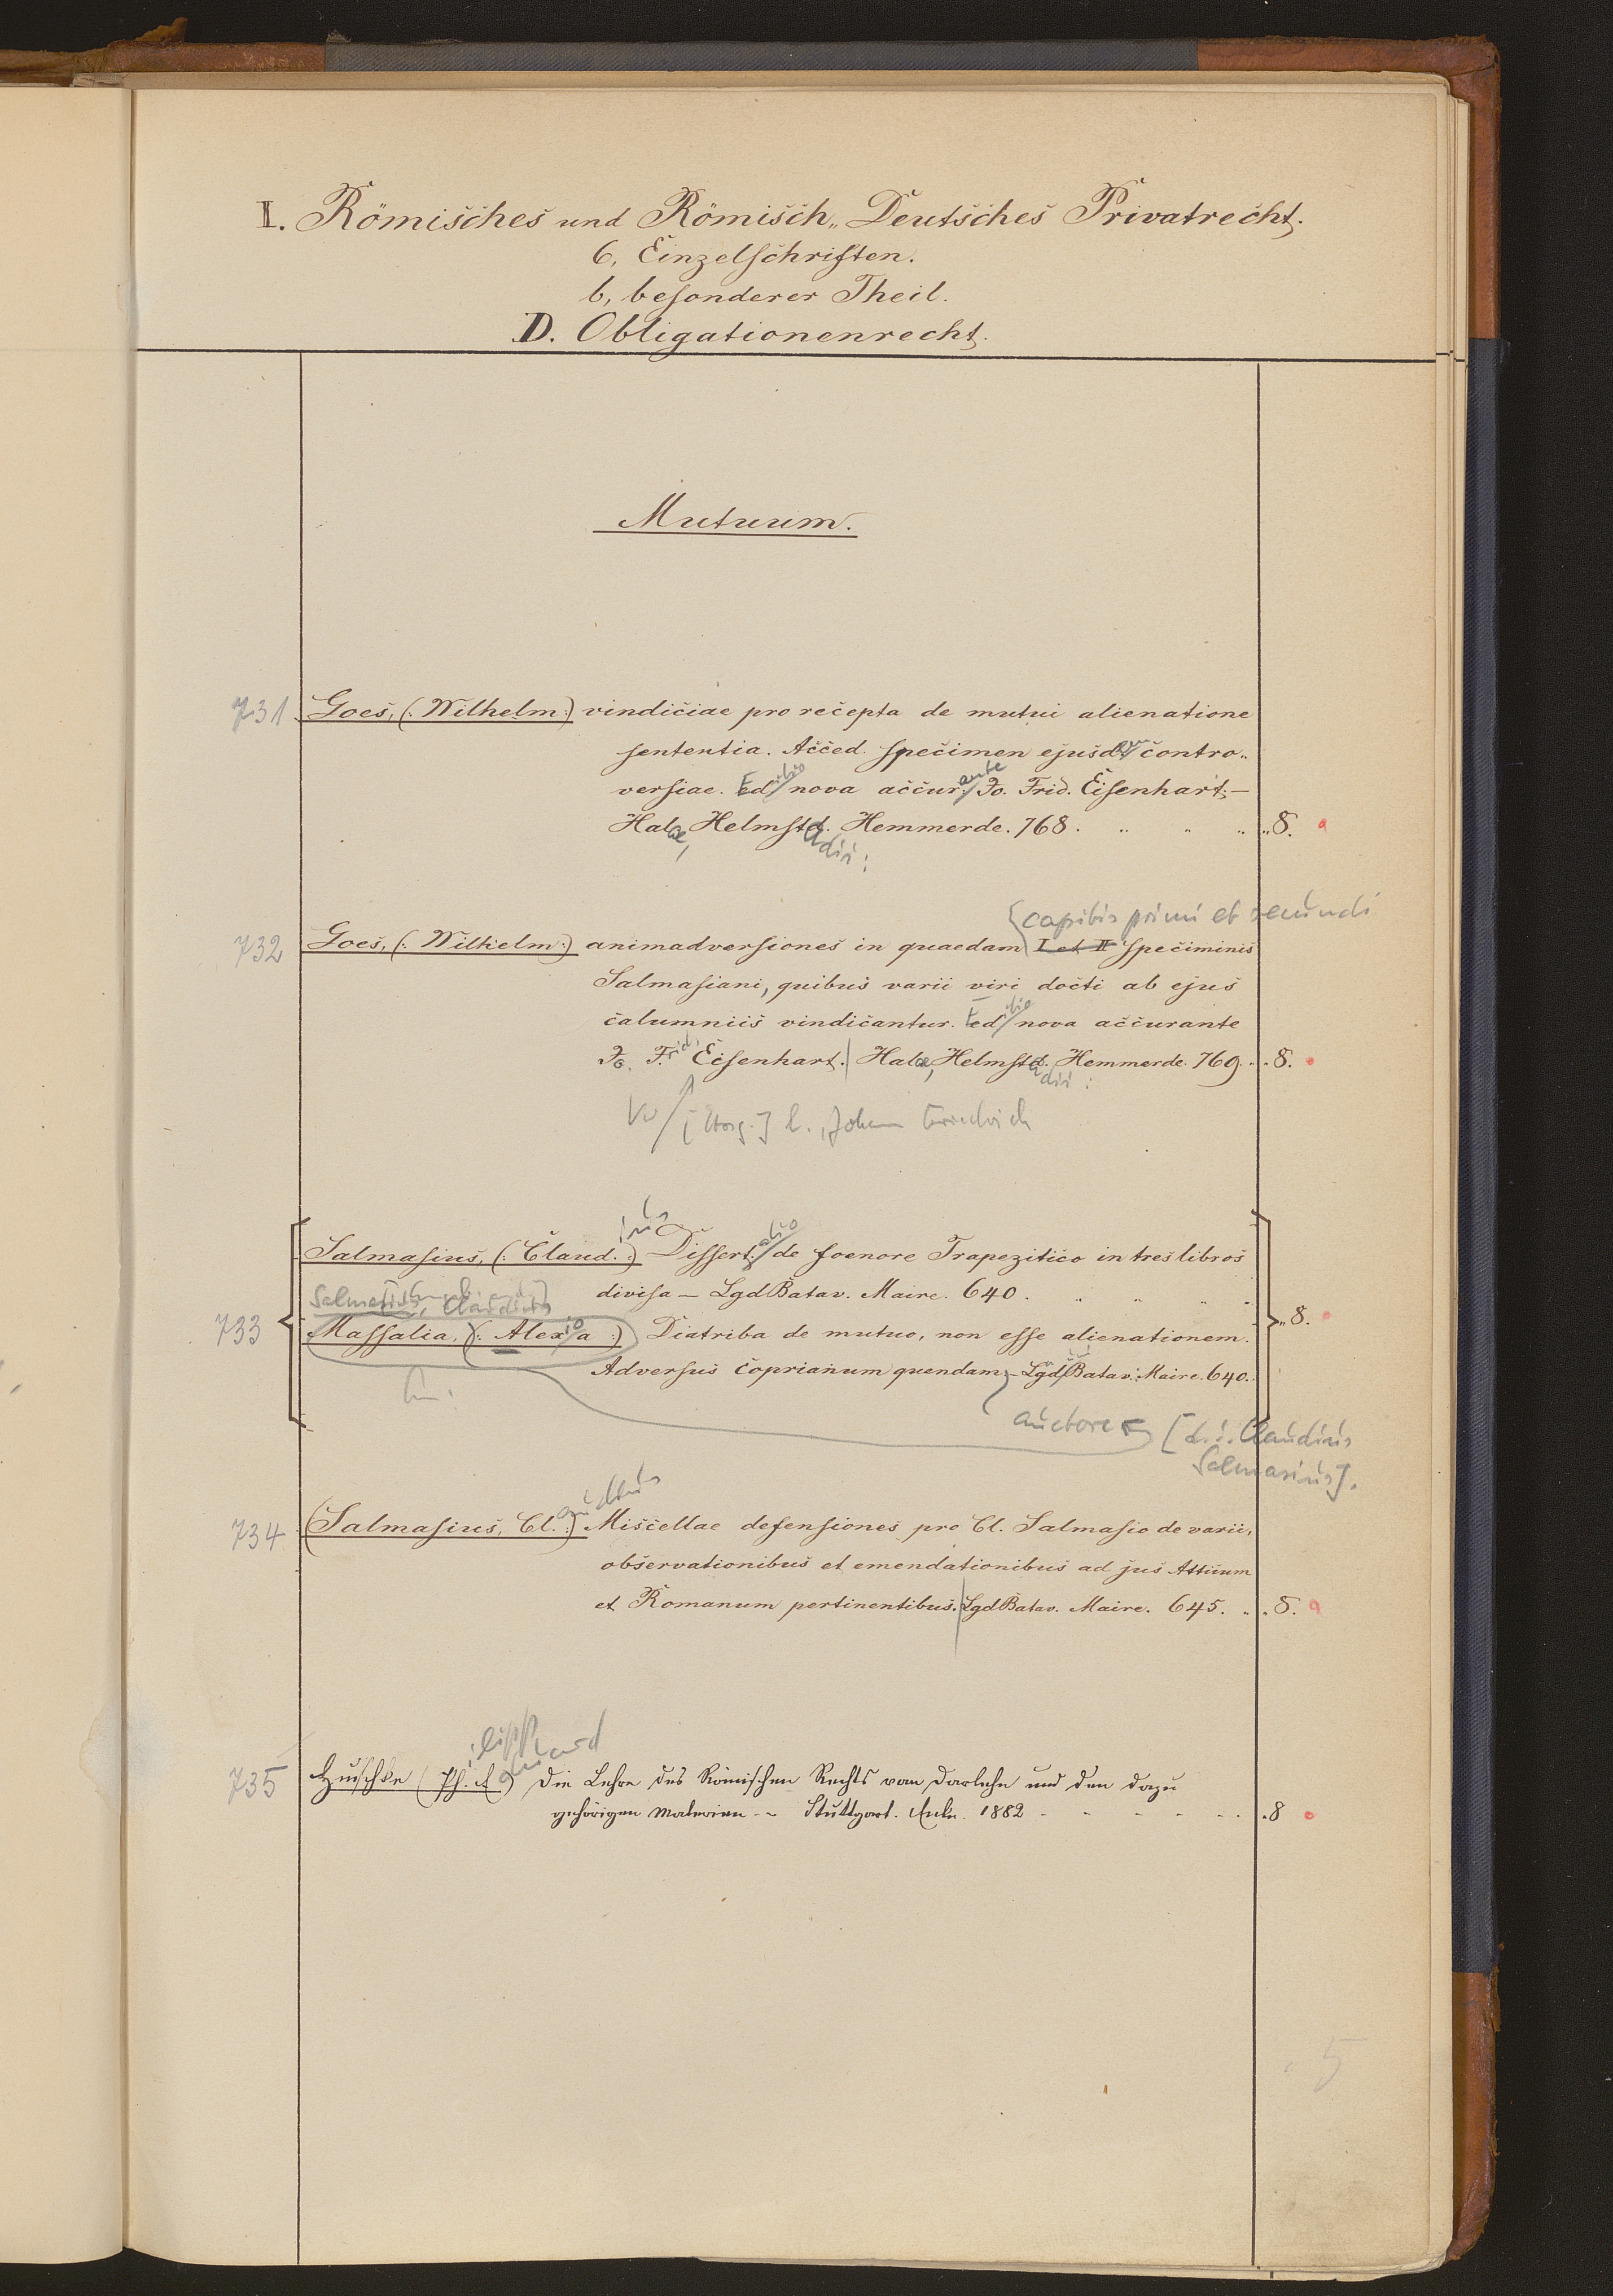 I. Römisches und Römisch„ Deutsches Privatrecht.
6, Einzelschriften.
b, besonderer Theil.
D. Obligationenrecht.
Mutuum.
731 Goes, (: Wilhelm :) vindiciae pro recepta de mutui alienatione
sententia. Acced. specimen ejusdem contro„
versiae. Editio nova accurante Jo. Frid. Eisenhart. —
Halae, Helmstadii: Hemmerde. 768. „ „ „ „8.
capitis primi et secundi
732 Goes, (: Wilhelm :) animadversiones in quaedam I et II speciminis
Salmasiani, quibus varii viri docti ab ejus
calumniis vindicantur. Editio nova accurante
Jo. Frid. Eisenhart. Halae, Helmstadii: Hemmerde. 769. „ 8.
Vw [Hrsg.] Johann Friedrich
Salmasius, (: Claudius :) Dissertatio de foenore Trapezitico in tres libros
divisa — Lgd Batav. Maire. 640. „ „ „ „
Salmasius, Claudius
733 Massalia, (: Alexio a :) Diatriba de mutuo, non esse alienationem. „8.
Adversus coprianum quendam — Lgd Batav. Maire. 640.
auctore [d. i. Claudius
Salmasius].
734 (Salmasius, Claudius :) Miscellae defensiones pro Cl. Salmasio de variis
observationibus et emendationibus ad jus Atticum
et Romanum pertinentibus. Lgd Batav. Maire. 645. „ „8.
735 Huschke (Philipp Eduard) Die Lehre des Römischen Rechts vom Darlehn und den dazu
gehörigen Materien — Stuttgart. Enke. 1882 - - - - - „8
5